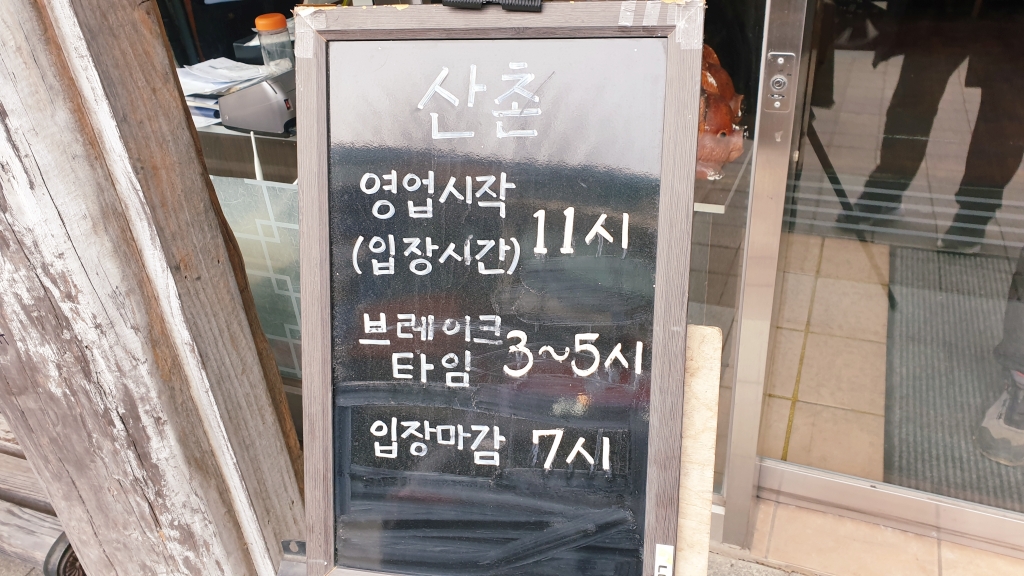 산촌
영업시작
(입장시간) 11시
브레이크
타임 3~5시
입장마감 7시